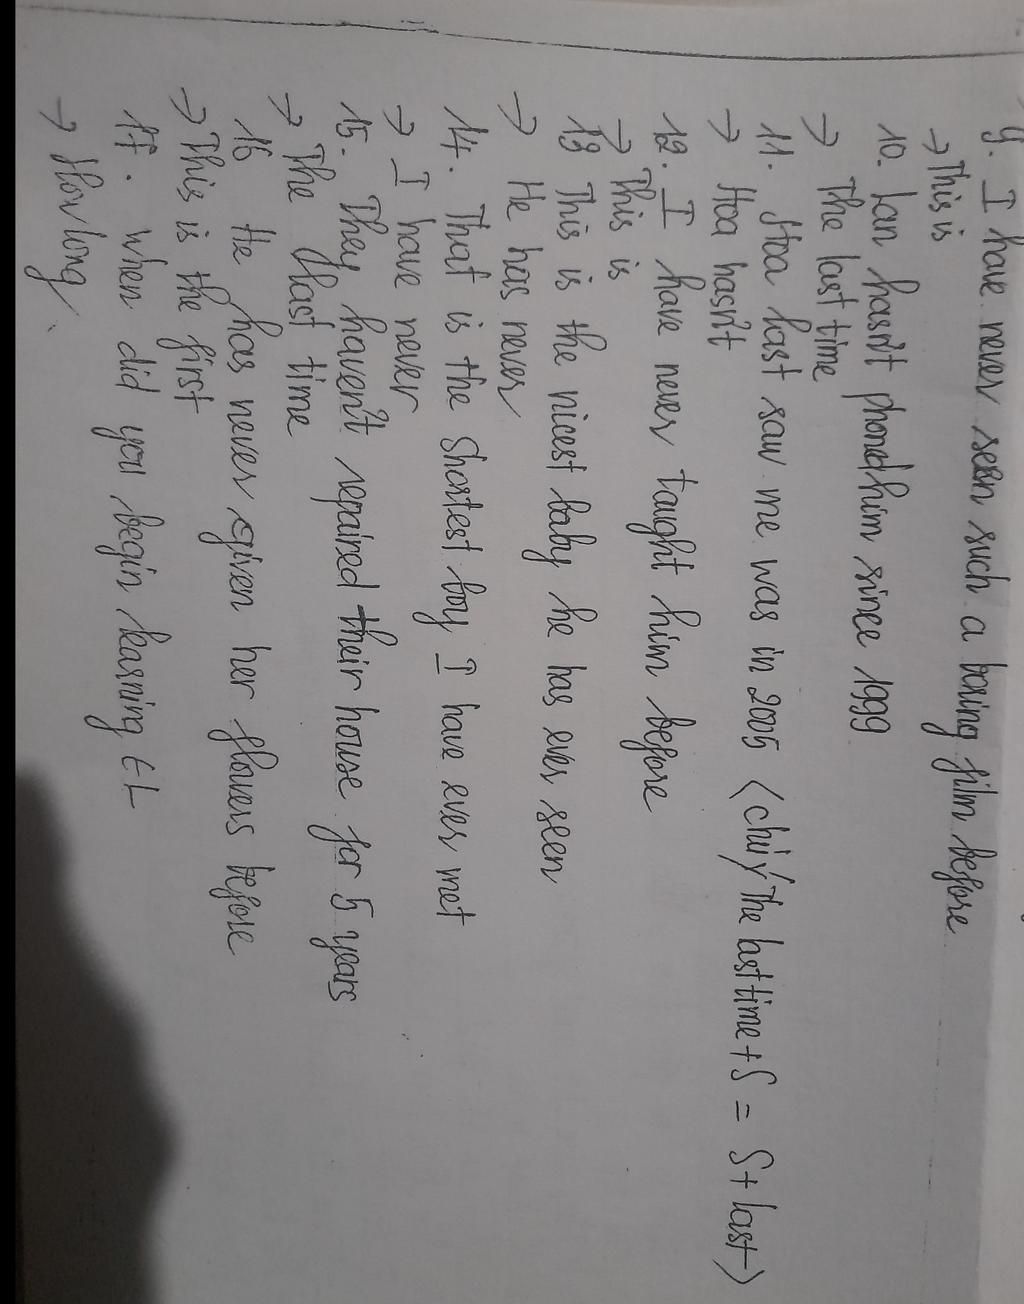 9. I have never seen such a boring film before
→ This is
10. Lan hasn't phoned him since 1999
→ The last time
11. Hoa last saw me was in 2005 (chú ý The last time + S = S + last)
→ Hoa hasn't
12. I have never taught him before
→ This is
13 This is the nicest baby he has ever seen
→ He has never
14. That is the shortest boy I have ever met
→ I have never
15. They haven't repaired their house for 5 years
→ The last time
16 He has never given her flowers before
→ This is the first
17. when did you begin learning EL
→ How long